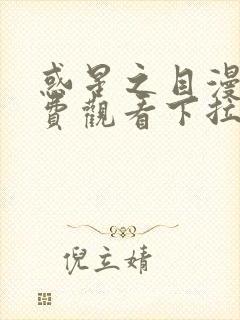 惑星之目漫
費觀看下拉
倪立婧